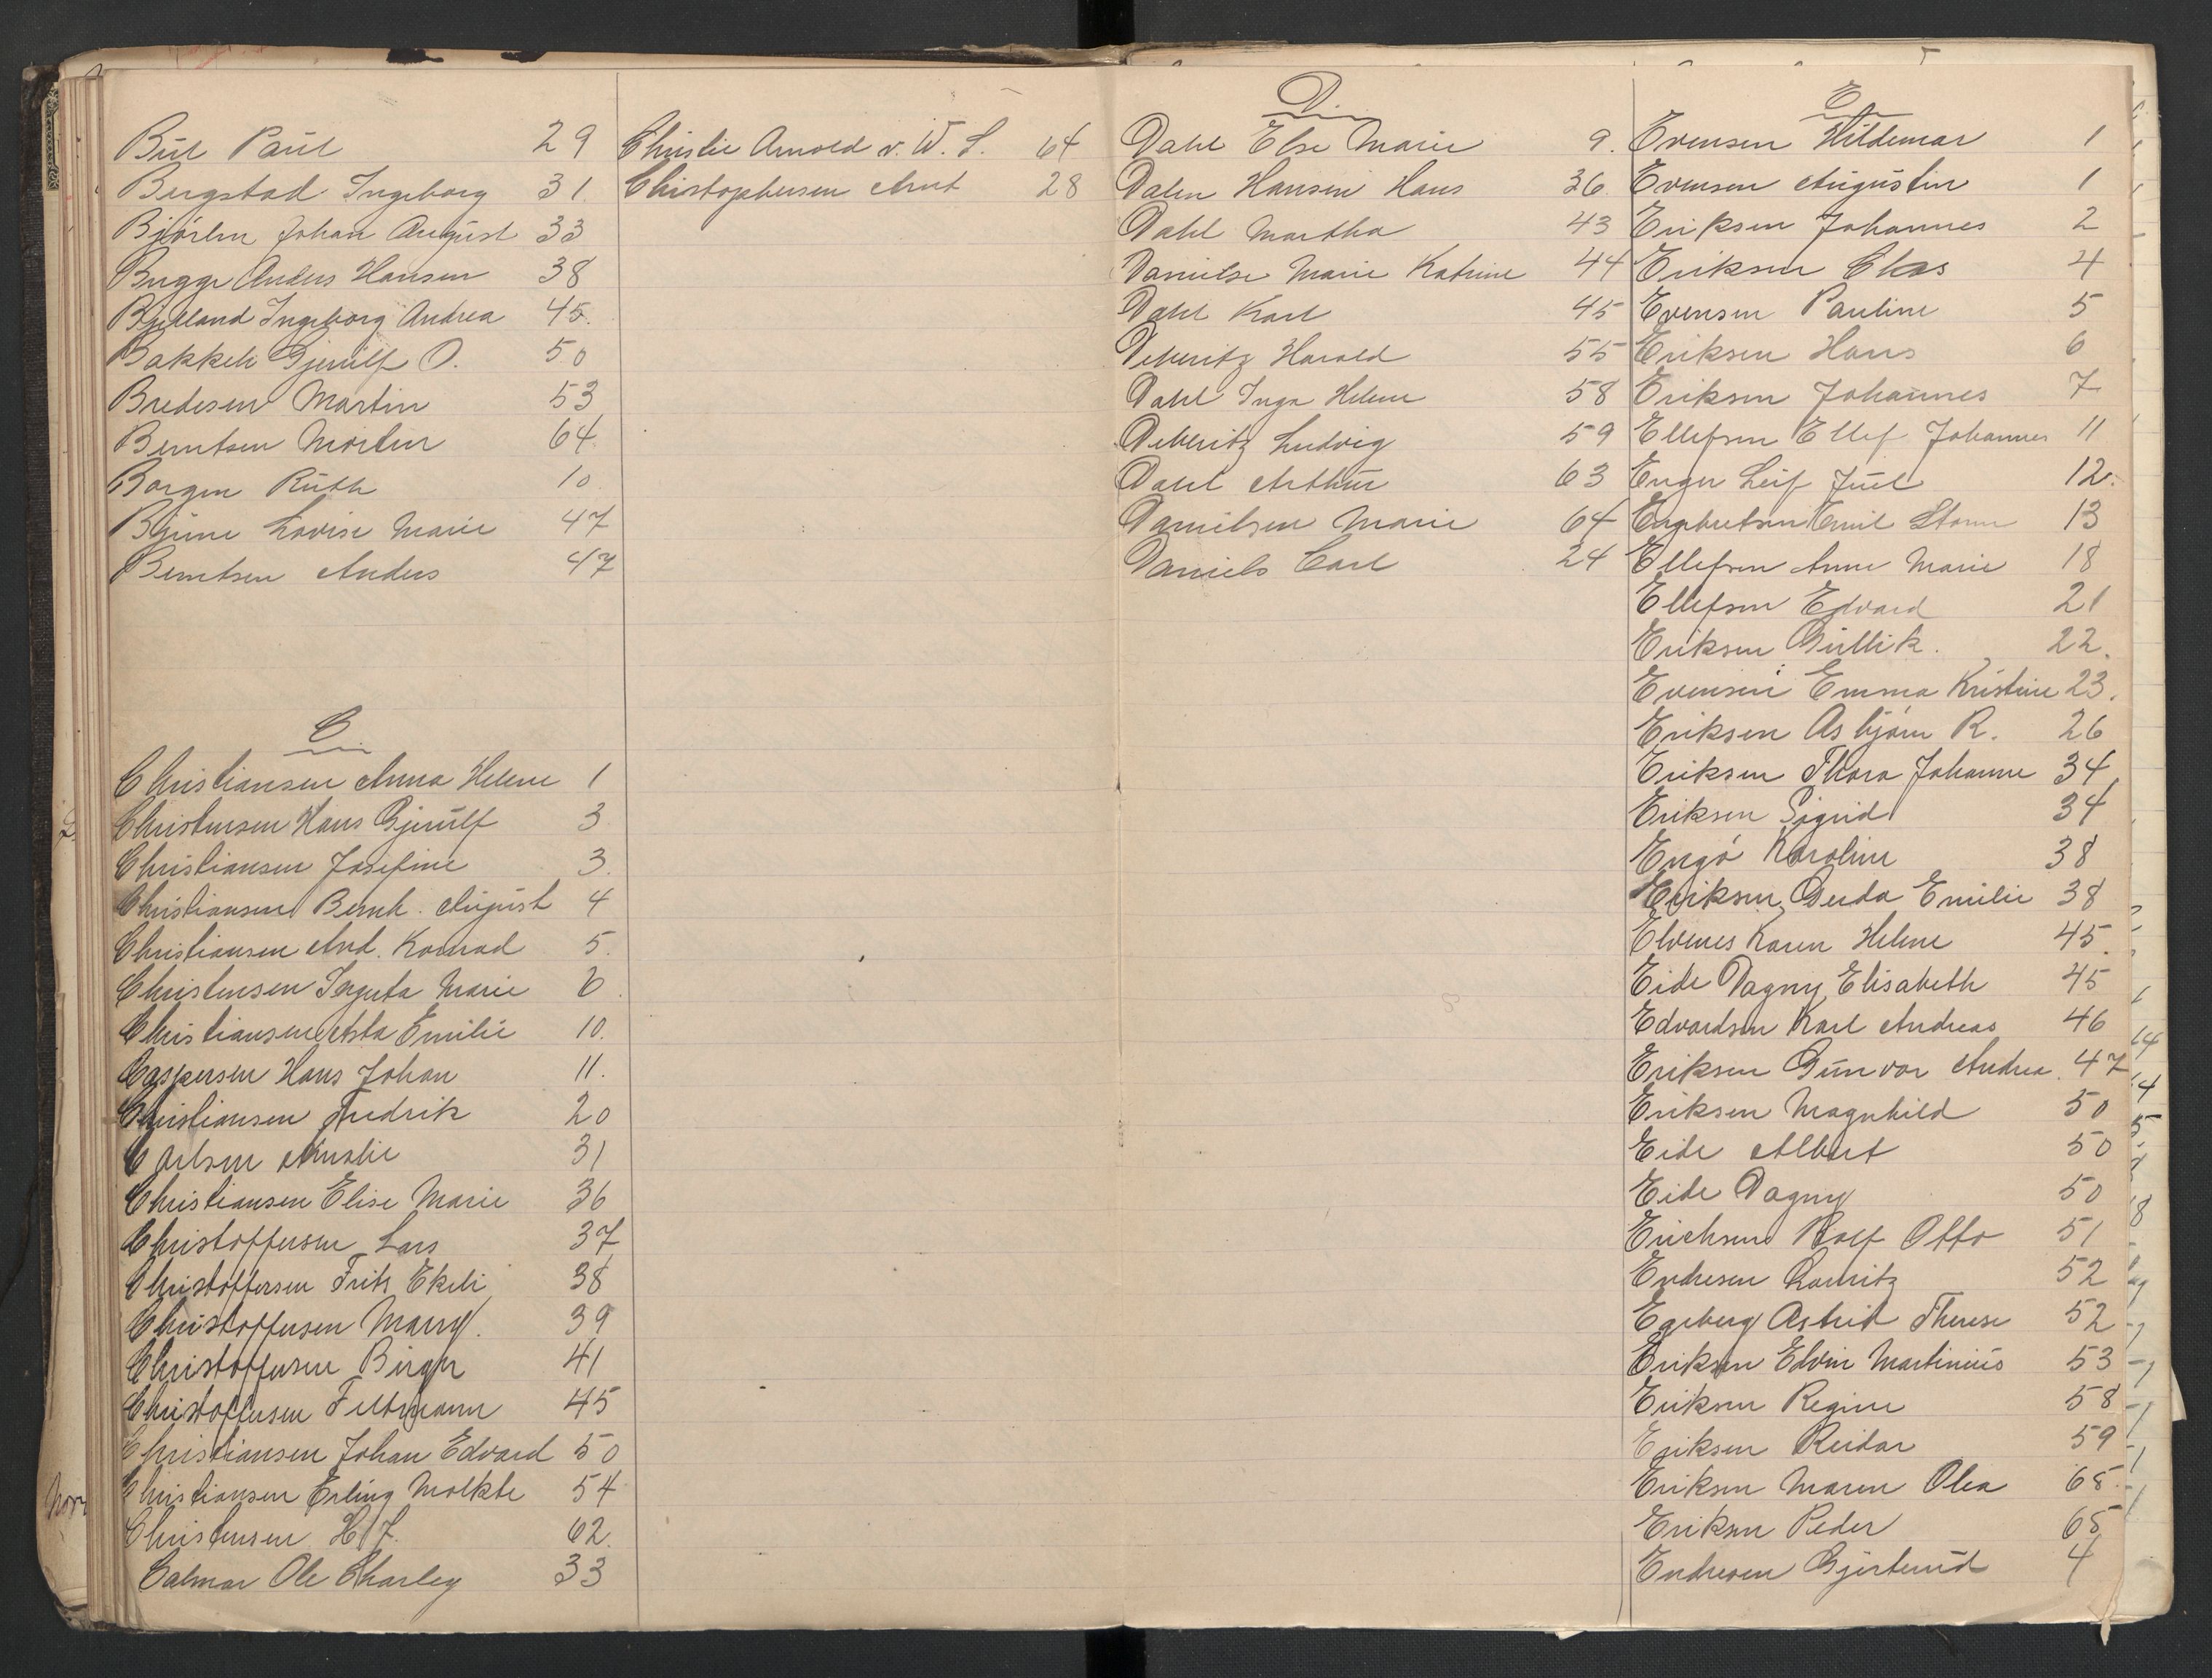 Bül Paül 29
Bergstad Ingeborg 31.
Bjørlin Johan August 33
Bugge Anders Hansen 38
Bjelland Ingeborg Andrea 45.
Bakkeli Gjerülf O. 50
Bredesen Martin 53
Berntsen Morten 64
Borgen Rüth 10
Bjüne Lovise Marie 47
Berntsen Anders 47
C
Christiansen Anna Helene 1
Christensen Hans Gjerülf 3
Christiansen Josefine 3.
Christiansen Bernh. August 4
Christiansen And. Konrad 5.
Christensen Marie 6.
Christiansen Asta Emilie 10.
Caspersen Hans Johan 11.
Christiansen Fredrik 20
Carlsen Amalie 31
Christiansen Elise Marie 36
Christoffersen Lars 37
Christoffersen Frits Ekeli 38
Christoffersen Marry. 39
Christoffersen Birger 41
Christoffersen Feltmann 45
Christiansen Johan Edvard 50
Christiansen Erling Molkte 54
Christensen H. F. 62.
Calmar Ole Charley 33
Christie Arnold v. W. S. 64
Christophersen Arnt 28
D.
Dahl Else Marie 9.
Dalen Hansen Hans 36.
Dahl Martha 43
Danielse Marie Katrine 44
Dahl Karl 45
Deberitz Harald 55
Dahl Inga Helene 58
Deberitz Ludvig 59
Dahl Arthür 63
Danielsen Marie 64
Daniels Carl 24
E
Evensen Hildemar 1
Evensen Augüstin 1
Eriksen Johannes 2
Eriksen Elias 4
Evensen Pauline 5
Eriksen Hans 6
Eriksen Johannes 7
Ellefsen Ellef Johannes 11
Enger Leif Jüel 12.
Engebretsen Emil Storm 13
Ellefsen Anne Marie 18
Ellefsen Edvard 21
Eriksen Güllik. 22.
Evensen Emma Kristine 23.
Eriksen Asbjørn R. 26
Eriksen Thora Johanne 34
Eriksen Sigrid 34
Engø Karoline 38
Eriksen Gerda Emilie 38
Elvenes Karen Helene 45.
Eide Dagny Elisabeth 45
Edvardsen Karl Andreas 46
Eriksen Günvor Andrea. 47
Eriksen Magnhild 50
Eide Albert 50
Eide Dagny 50
Erichsen Rolf Otto 51
Endresen Lauritz 52
Egeberg Astrid Therese 52
Eriksen Edvin Martinius 53
Eriksen Regine 58
Eriksen Reidar 59
Eriksen Maren Olea 65.
Eriksen Peder 65
Endresen Gjertrüd 4